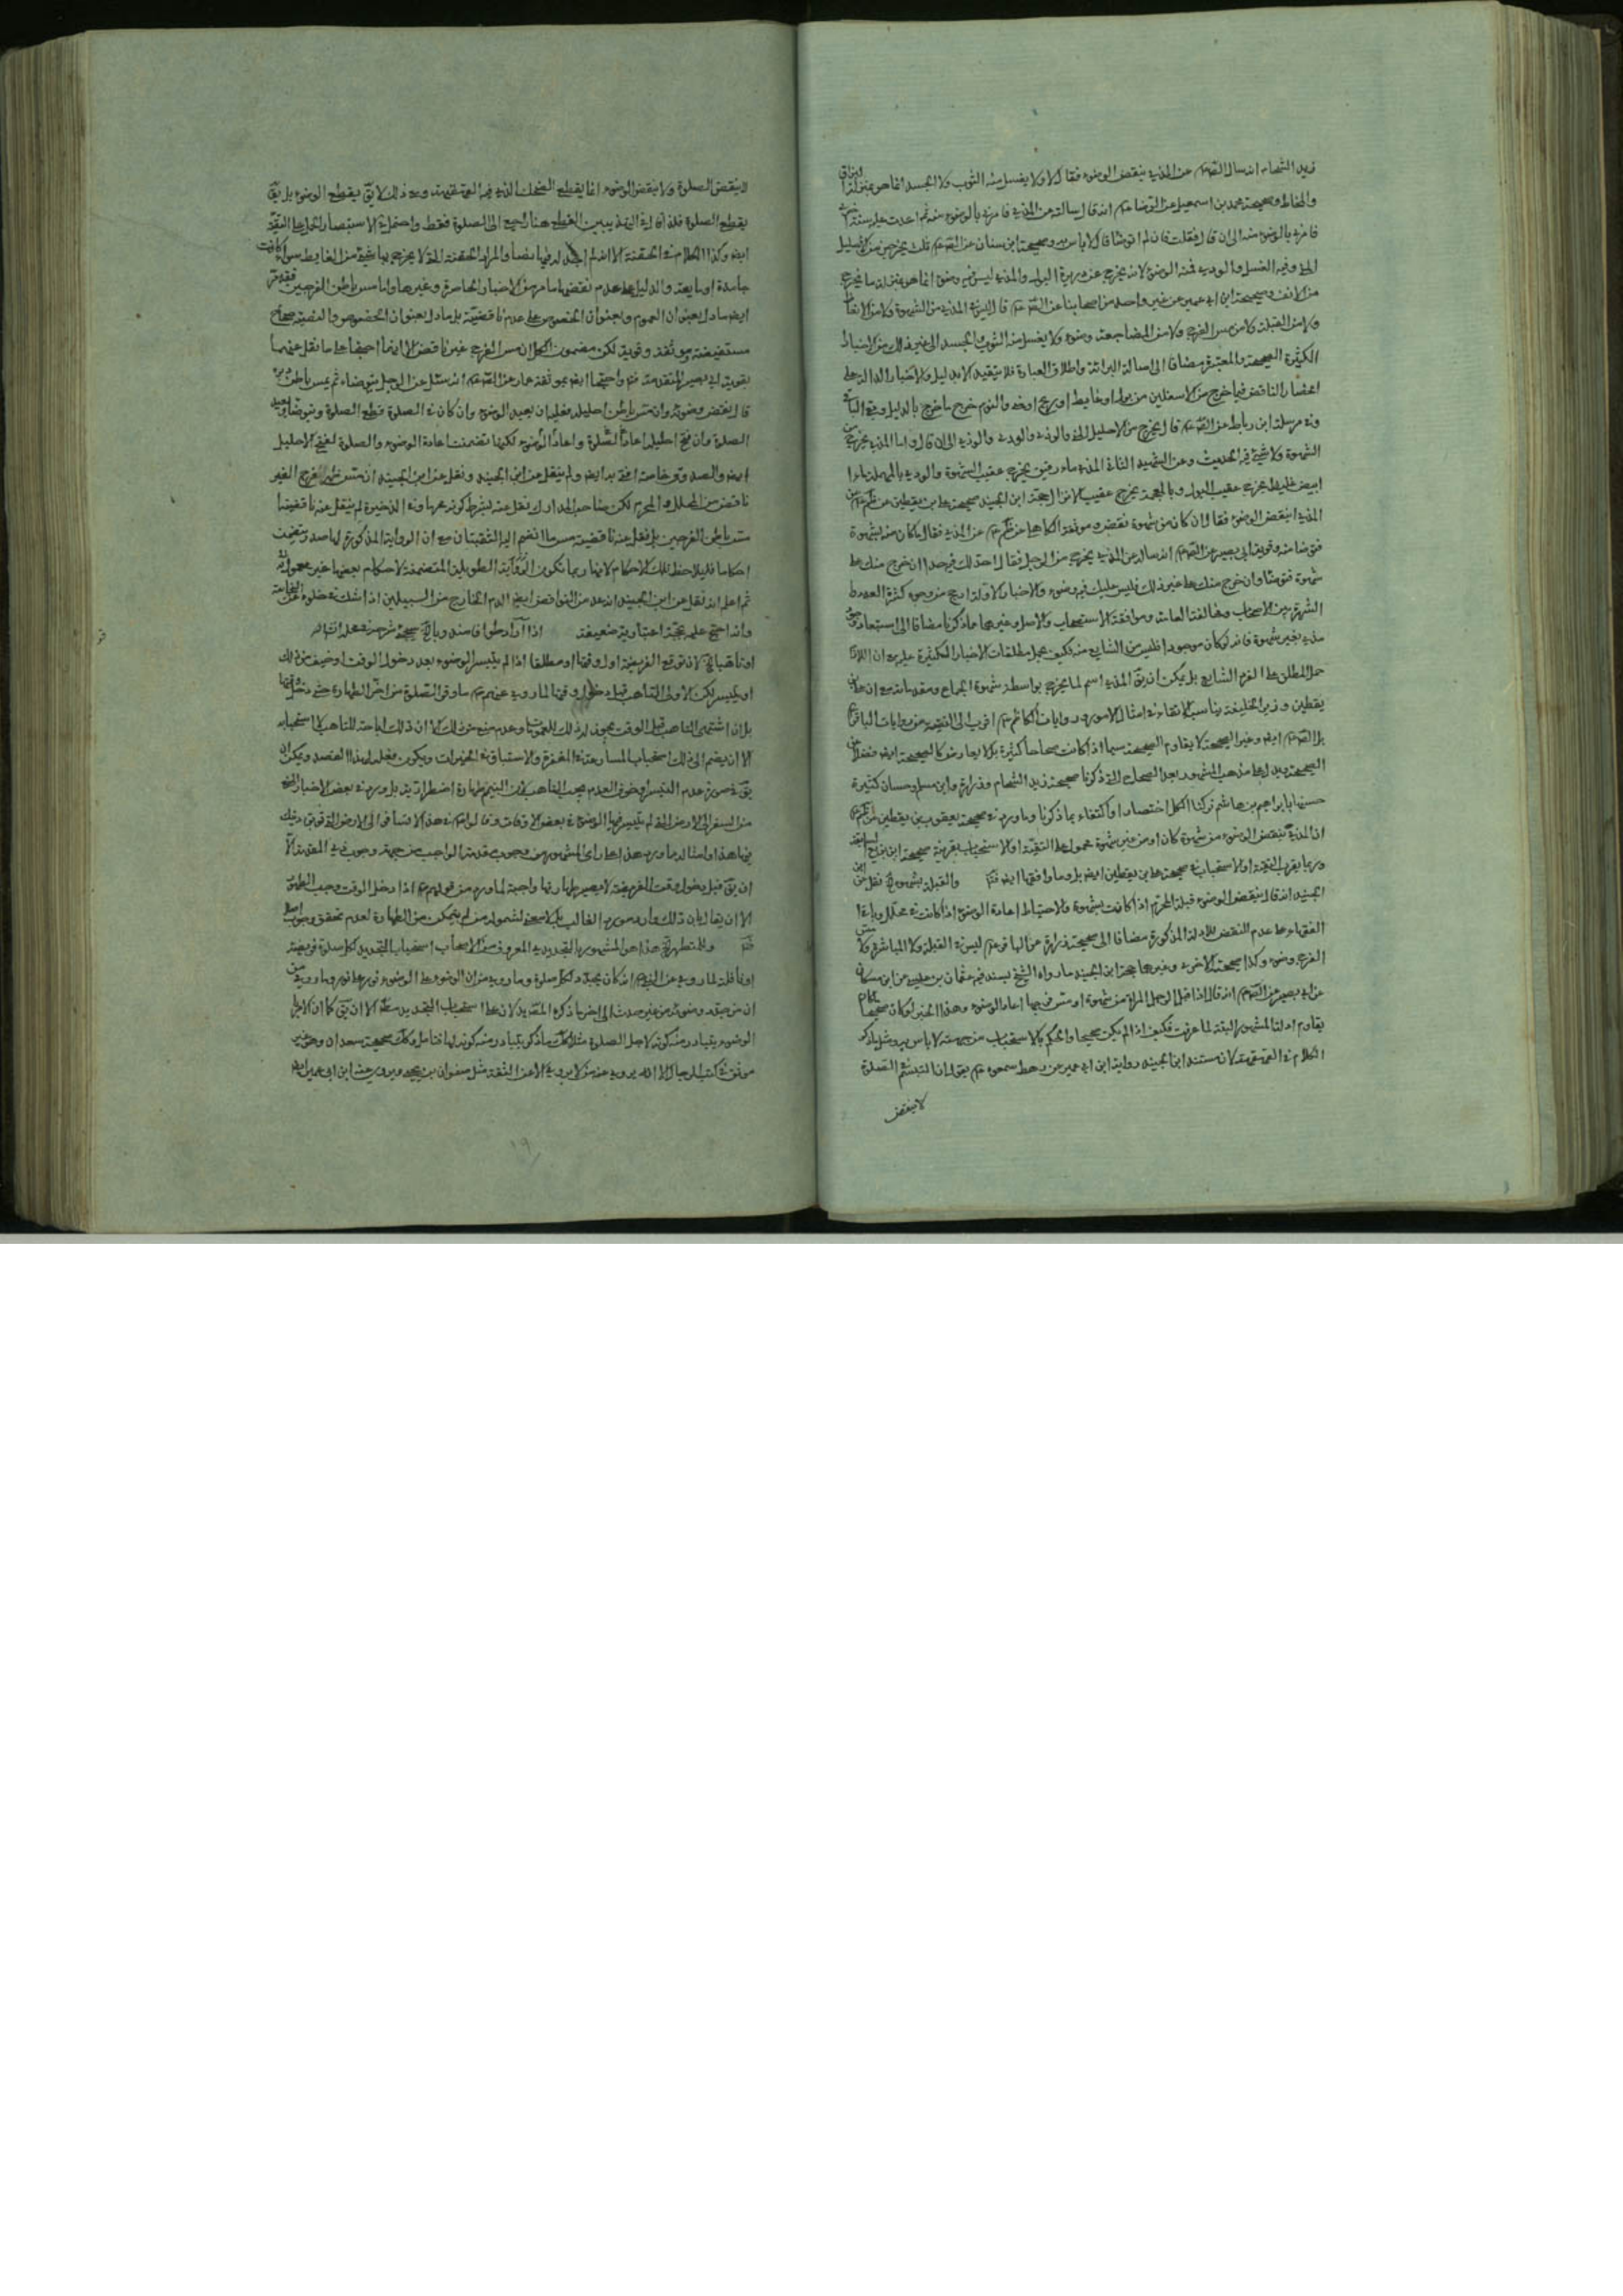 زيد الشحام انه سال الصادق عم عن المذي ينقض الوضوء فقال لا ولا يغسل منه الثوب ولا الجسد انما هو بمنزلة البزاق
والمخاط وصحيحة محمد بن اسمعيل عن الرضا عم انه قال سالته عن المذي فامرني بالوضوء منه ثم اعدت عليه سنة اخرى
فامرني بالوضوء منه الى ان قال فقلت فان لم اتوضا قال لا باس به وصحيحة ابن سنان عن الصادق عم ثلث يخرجن من الاحليل
المني وفيه الغسل والودي فمنه الوضوء لانه يخرج من دريرة البول والمذي ليس فيه وضوء انما هو بمنزلة ما يخرج
من الانف وصحيحة ابن ابي عمير عن غير واحد من اصحابنا عن الصادق عم قال ليس في المذي من الشهوة ولا من الانعاظ
ولا من القبلة ولا من مس الفرج ولا من المضاجعة وضوء ولا يغسل منه الثوب والجسد الى غير ذلك من الاخبار
الكثيرة الصحيحة والمعتبرة مضافا الى اصالة البرائة واطلاق العبارة فلا يقيد الا بدليل والاخبار الدالة على
انحصار الناقض فيما خرج من الاسفلين من بول او غايط او ريح او مني والنوم خرج ما خرج بالدليل وبقي الباقي
وفي مرسلة ابن رباط عن الصادق عم قال يخرج من الاحليل المني والوذي والودي والمذي الى ان قال واما المذي يخرج من
الشهوة ولا شيء فيه الحديث وعن الشهيد الثاني المذي ماء رقيق يخرج عقيب الشهوة والودي بالمهملة ماء
ابيض غليظ يخرج عقيب البول وبالمعجمة يخرج عقيب الانزال حجة ابن الجنيد صحيحة علي بن يقطين عن الكاظم عم عن
المذي اينقض الوضوء فقال ان كان من شهوة نقض وموثقة الكاهلي عن الكاظم عم عن المذي فقال ما كان منه بشهوة
فتوضا منه وقوية ابي بصير عن الصادق عم انه سال عن المذي يخرج من الرجل فقال احد لك فيه حدا ان خرج منك على
شهوة فتوضا وان خرج منك على غير ذلك فليس عليك فيه وضوء والاخبار الاولة ارجح من وجوه كثرة العدد و
الشهرة بين الاصحاب ومخالفة العامة وموافقة الاستصحاب والاصل وغيرها ما ذكرنا مضافا الى استبعاد خروج
مذي بغير شهوة فانه لو كان موجودا فليس من الشايع منه فكيف يحمل مطلقات الاخبار الكثيرة عليه مع ان اللازم
حمل المطلق على الفرد الشايع بل يمكن ان يق المذي اسم لما يخرج بواسطة شهوة الجماع ومقدماته مع ان علي بن
يقطين وزير الخليفة يناسب الاتقاء في امثال الامور ورد وايات الكاظم عم اقرب الى التقية من روايات الباقر عم
بل الصادق عم ايض وغير الصحيحة لا يقاوم الصحيحة سيما اذا كانت صحاحا كثيرة بل لا يعارض كالصحيحة ايض
الصحيحة ويدل على مذهب المشهور بعد الصحاح التي ذكرنا صحيحة زيد الشحام وزرارة وابن مسلم وحسان كثيرة
حسنها بابراهيم بن هاشم تركنا الكل اختصارا واكتفاء بما ذكرنا وما ورد في صحيحة يعقوب بن يقطين عن الكاظم عم
ان المذي ينقض الوضوء من شهوة كان او من غير شهوة محمول على التقية او الاستحباب بقرينة صحيحة ابن بزيع السابقة
وربما يقرب التقية او الاستحباب في صحيحة علي بن يقطين ايض بل وما وافقها ايض والقبلة بشهوة نقل عن ابن
الجنيد انه قال ينقض الوضوء قبلة المحرم اذا كانت بشهوة والاحتياط اعادة الوضوء اذا كانت في محلل وباقي
الفقهاء على عدم النقض للادلة المذكورة مضافا الى صحيحة زرارة عن الباقر عم ليس في القبلة ولا المباشرة ولا مس
الفرج وضوء وكذا صحيحة الاخرى وغيرها حجة ابن الجنيد ما رواه الشيخ بسند فيه عثمان بن عيسى عن ابن مسكان
عن ابي بصير عن الصادق عم انه قال اذا قبل الرجل المراة من شهوة او مس فرجها اعاد الوضوء وهذا الخبر لو كان صحيحا لم
يقاوم ادلة المشهور البتة لما عرفت فكيف اذا لم يكن صحيحا والحكم بالاستحباب من جهته لا باس به ومثل ما ذكر
الكلام في القهقهة لان مستند ابن الجنيد رواية ابن ابي عمير عن رهط سمعوه عم يقول ان التبسم في الصلوة
لا ينقض
لا ينقض الصلوة ولا ينقض الوضوء انما يقطع الضحك الذي فيه القهقهة ومع ذلك لا يق يقطع الوضوء بل يق
يقطع الصلوة فلذا قال في التهذيبين القطع هنا راجع الى الصلوة فقط واحتمل في الاستبصار الحمل على التقية
ايض وكذا الكلام في الحقنة الا انه لم اجد له فيها نصا والمراد الحقنة التي لا يخرج بها شيء من الغايط سواء كانت
جامدة او مايعة والدليل على عدم نقضها ما مر من الاخبار الحاصرة وغيرها واما مس باطن الفرجين فقد مر
ايض ما دل بعنوان العموم وبعنوان الخصوص على عدم ناقضيته بل ما دل بعنوان الخصوص والنصية صحاح
مستفيضة وموثقة وقوية لكن مضمون الكل ان مس الفرج غير ناقض الا انهما احتجا على ما نقل عنهما
بقوية ابي بصير المتقدمة واحتجا ايض بموثقة عمار عن الصادق عم انه سئل عن الرجل يتوضاء ثم يمس باطن دبره
قال نقض وضوئه وان مس باطن احليله فعليه ان يعيد الوضوء وان كان في الصلوة قطع الصلوة ويتوضا ويعيد
الصلوة وان فتح احليله اعاد الصلوة واعاد الوضوء لكنها تضمنت اعادة الوضوء والصلوة لفتح الاحليل
ايض والصدوق خاصة افتى به ايض ولم ينقل عن ابن الجنيد ونقل عن ابن الجنيد ان مس ظهر الفرج الغير
ناقض من المحلل والمحرم لكن صاحب المدارك نقل عنه بشرط كونه محرما وفي الذخيرة لم ينقل عنه ناقضية
مس باطن الفرجين بل نقل عنه ناقضية مس ما انضم اليه الثقبتان مع ان الرواية المذكورة لها صدر تضمنت
احكاما فليلاحظ تلك الاحكام لانها ربما تكون الرواية الطويلة المتضمنة لاحكام بعضها غير معمول به
ثم اعلم انه نقل عن ابن الجنيد انه عد من النواقض ايض الدم الخارج من السبيلين اذا شك في خلوه من النجاسة
وانه احتج عليه بحجة اعتبارية ضعيفة اذا اراد طوافا مندوبا سيجيء شرحه في محله انشاء الله
او تاهبا لان توقع الفريضة اول وقتها او مطلقا اذا لم يتيسر الوضوء بعد دخول الوقت او خيف من ذلك
او يتيسر لكن الاولى التاهب قبل دخول وقتها لما روي عنهم عم ما وقر الصلوة من اخر الطهارة حتى يدخل وقتها
بل ان اشتهى التاهب قبل الوقت يجوز له ذلك للعمومات وعدم منع من ذلك الا ان ذلك اباحة للتاهب لا استحبابه
الا ان يضم الى ذلك استحباب المسارعة في المغفرة والاستباق في الخيرات ويكون فعله لهذا القصد ويمكن ان
يق في صورة عدم التيسر او خوف العدم يجب التاهب لان التيمم طهارة اضطرارية بل ورد في بعض الاخبار المنع
من السفر الى الارض التي لم يتيسر فيها الوضوء في بعض الاوقات وقالوا عم في هذا لا تسافر الى الارض التي توبق دينك
فيها هذا وامثاله ما ورد هذا على راى المشهور من وجوب مقدمة الواجب من جهة وجوب ذي المقدمة الا
ان يق قبل دخول وقت الفريضة لا يصير طهارتها واجبة لما ورد من قولهم عم اذا دخل الوقت وجب الطهور
الا ان يقال بان ذلك وارد مورد الغالب بل لا معنى لشموله من لم يتمكن من الطهارة لعدم تحقق وجوب اصلا
وللتطهر هذا هو المشهور بالتجديدي المعروف من الاصحاب استحباب التجديد لكل صلوة فريضة
او نافلة لما روي عن النبي ص انه كان يجدد لكل صلوة وما روي من ان الوضوء على الوضوء نور على نور وما روي من
ان من جدد وضوئه من غير حدث الى اخر ما ذكره المقيد لان على استحباب التجديد الا ان يق كما ان الامر
الوضوء يتبادر منه كونه لاجل الصلوة مثلا كك ما ذكر يتبادر منه كونه لها فتامل وكك صحيحة سعدان وهو غير
موثق في كتب الرجال الا انه يروي عنه من لا يروي الا عن الثقة مثل صفوان بن يحيى ويروي عنه ابن ابي عمير ايض